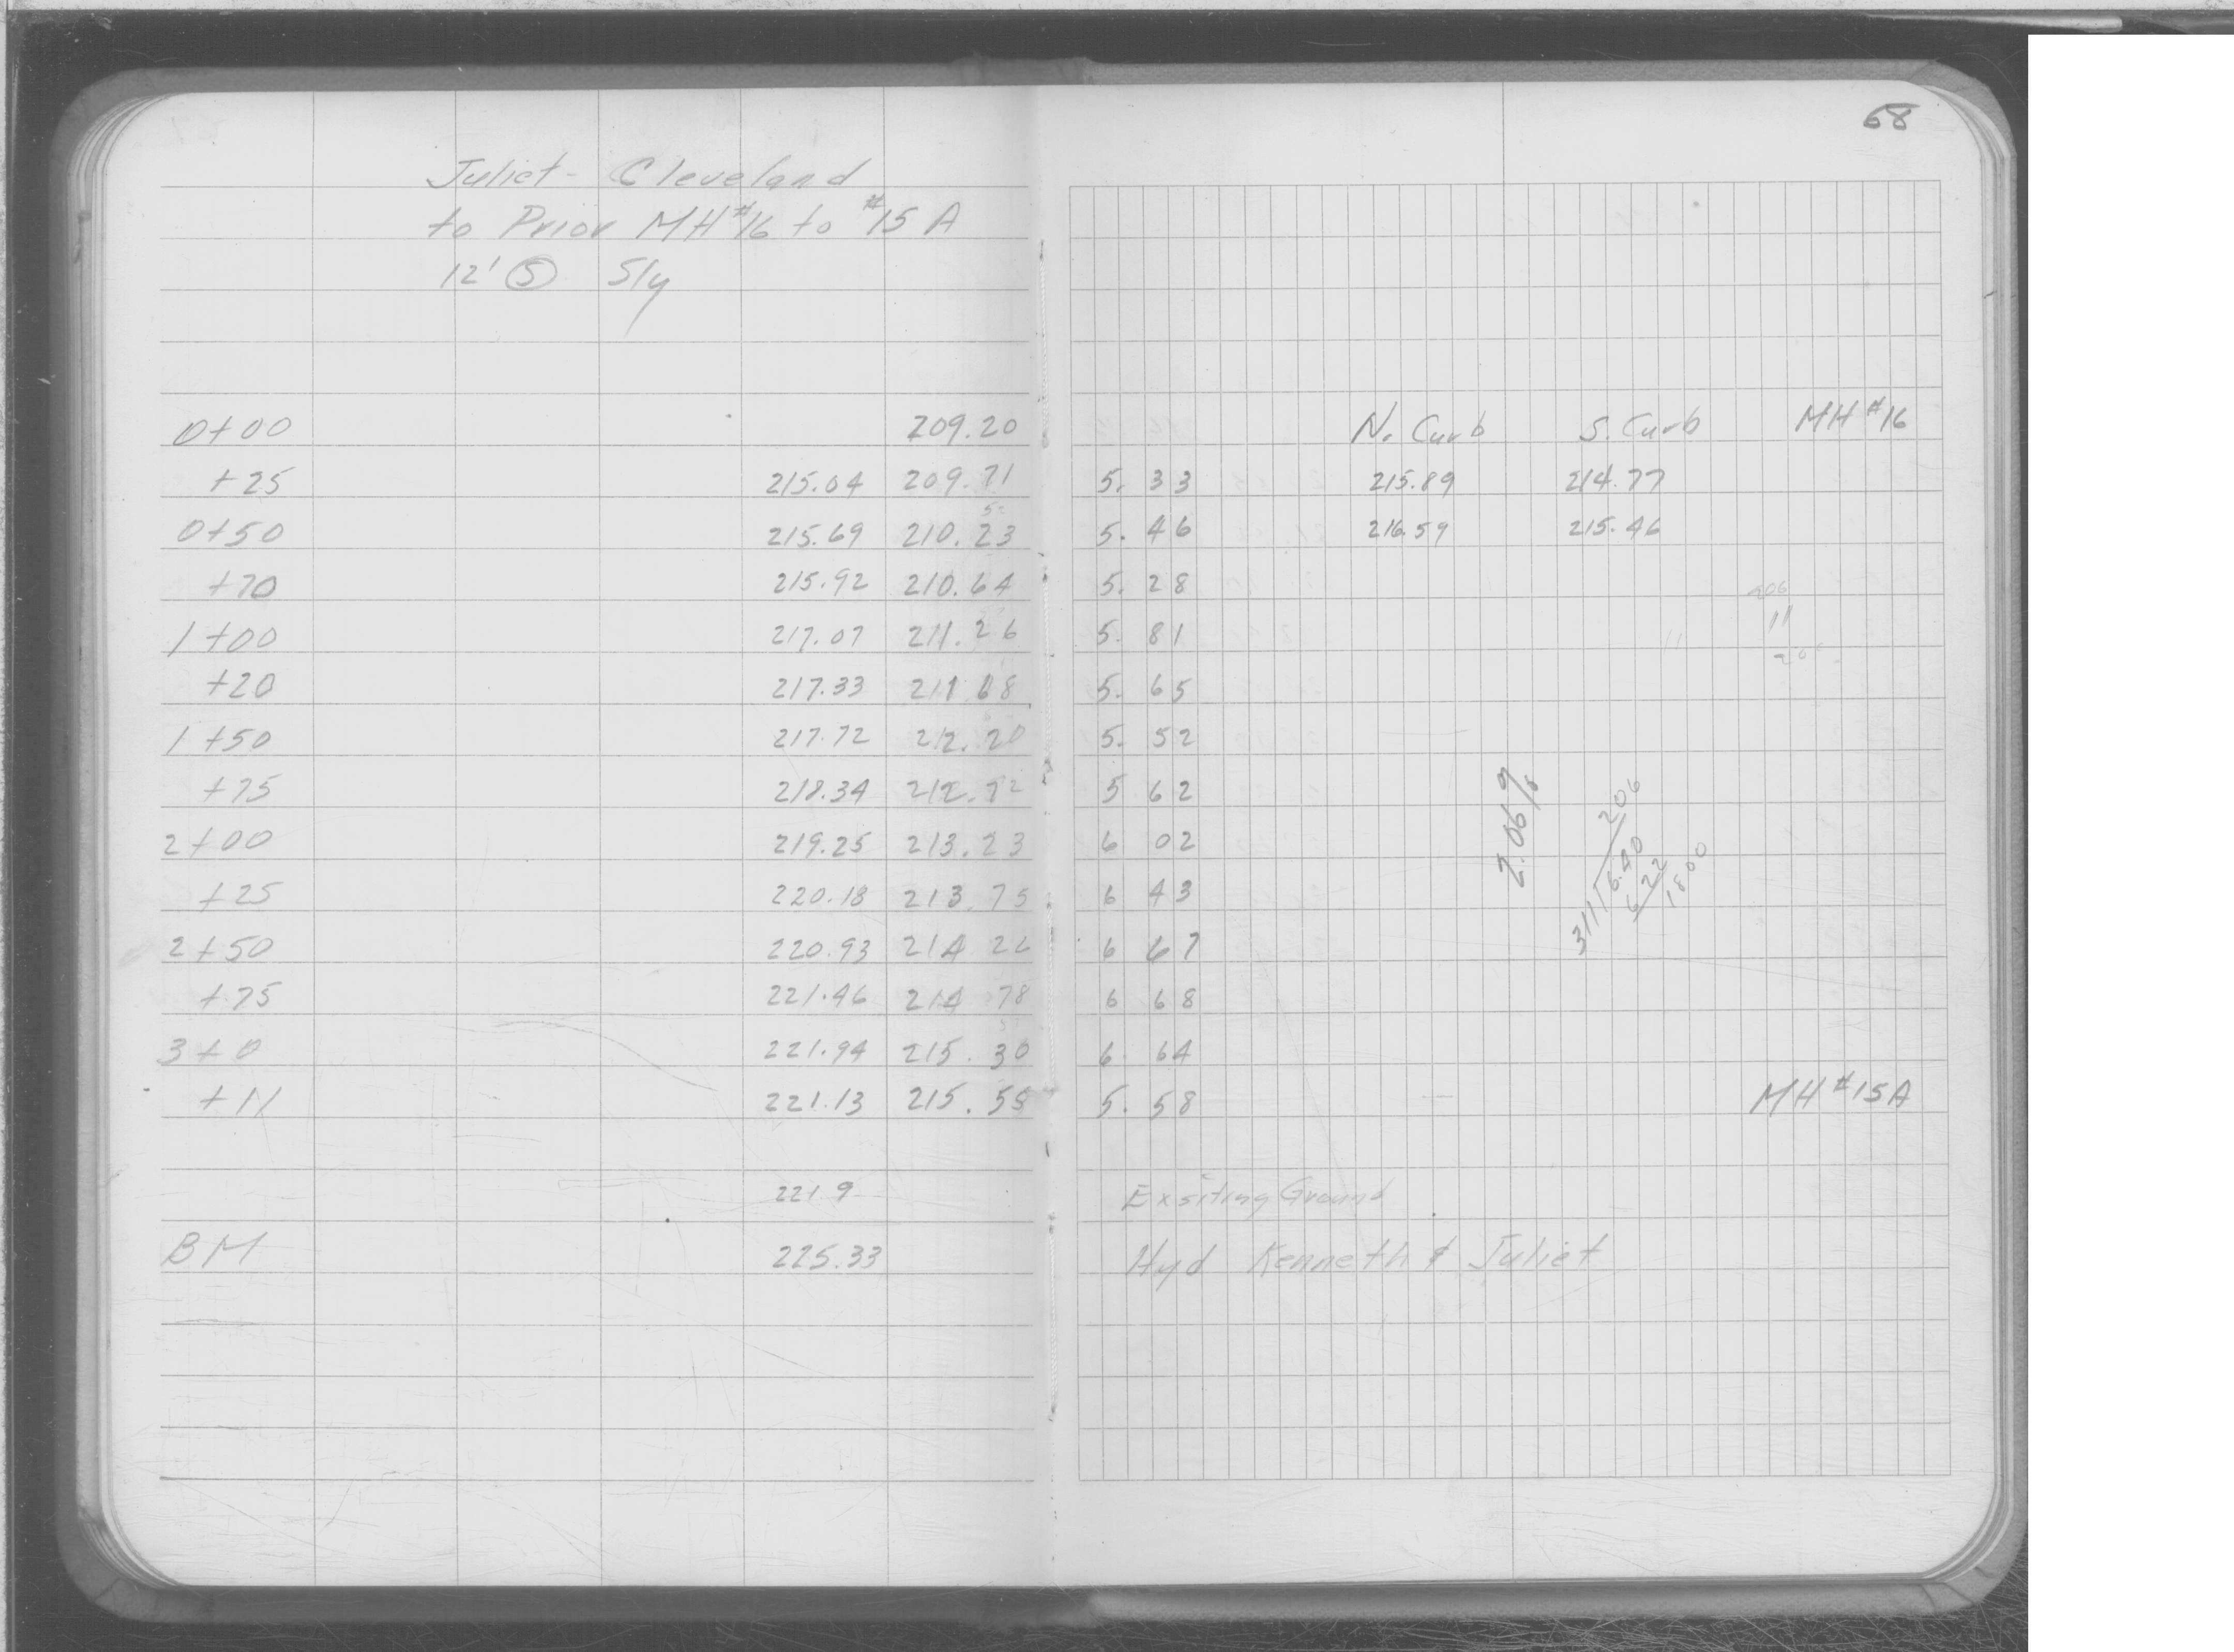 68
Juliet - Cleveland
to Prior MH #16 to #15 A
12' Ⓢ Sly
0+00 209.20 N. Curb S. Curb MH #16
+25 215.04 209.71 5. 33 215.89 214.77
0+50 215.69 210.23 5. 46 216.59 215.46
+70 215.92 210.64 5. 28
206
1+00 217.07 211.26 5. 81
11
+20 217.33 211.68 5. 65
1+50 217.72 212.20 5. 52
+75 218.34 212.72 5 62
2+00 219.25 213.23 6 02
+25 220.18 213.75 6 43
2+50 220.93 214 26 6 67
+75 221.46 214 78 6 68
3+0 221.94 215.30 6. 64
+11 221.13 215.55 5. 58 MH #15A
2.06%
206
311 6.40
6 22
1800
221.9 Exsiting Ground
BM 225.33 Hyd Kenneth & Juliet